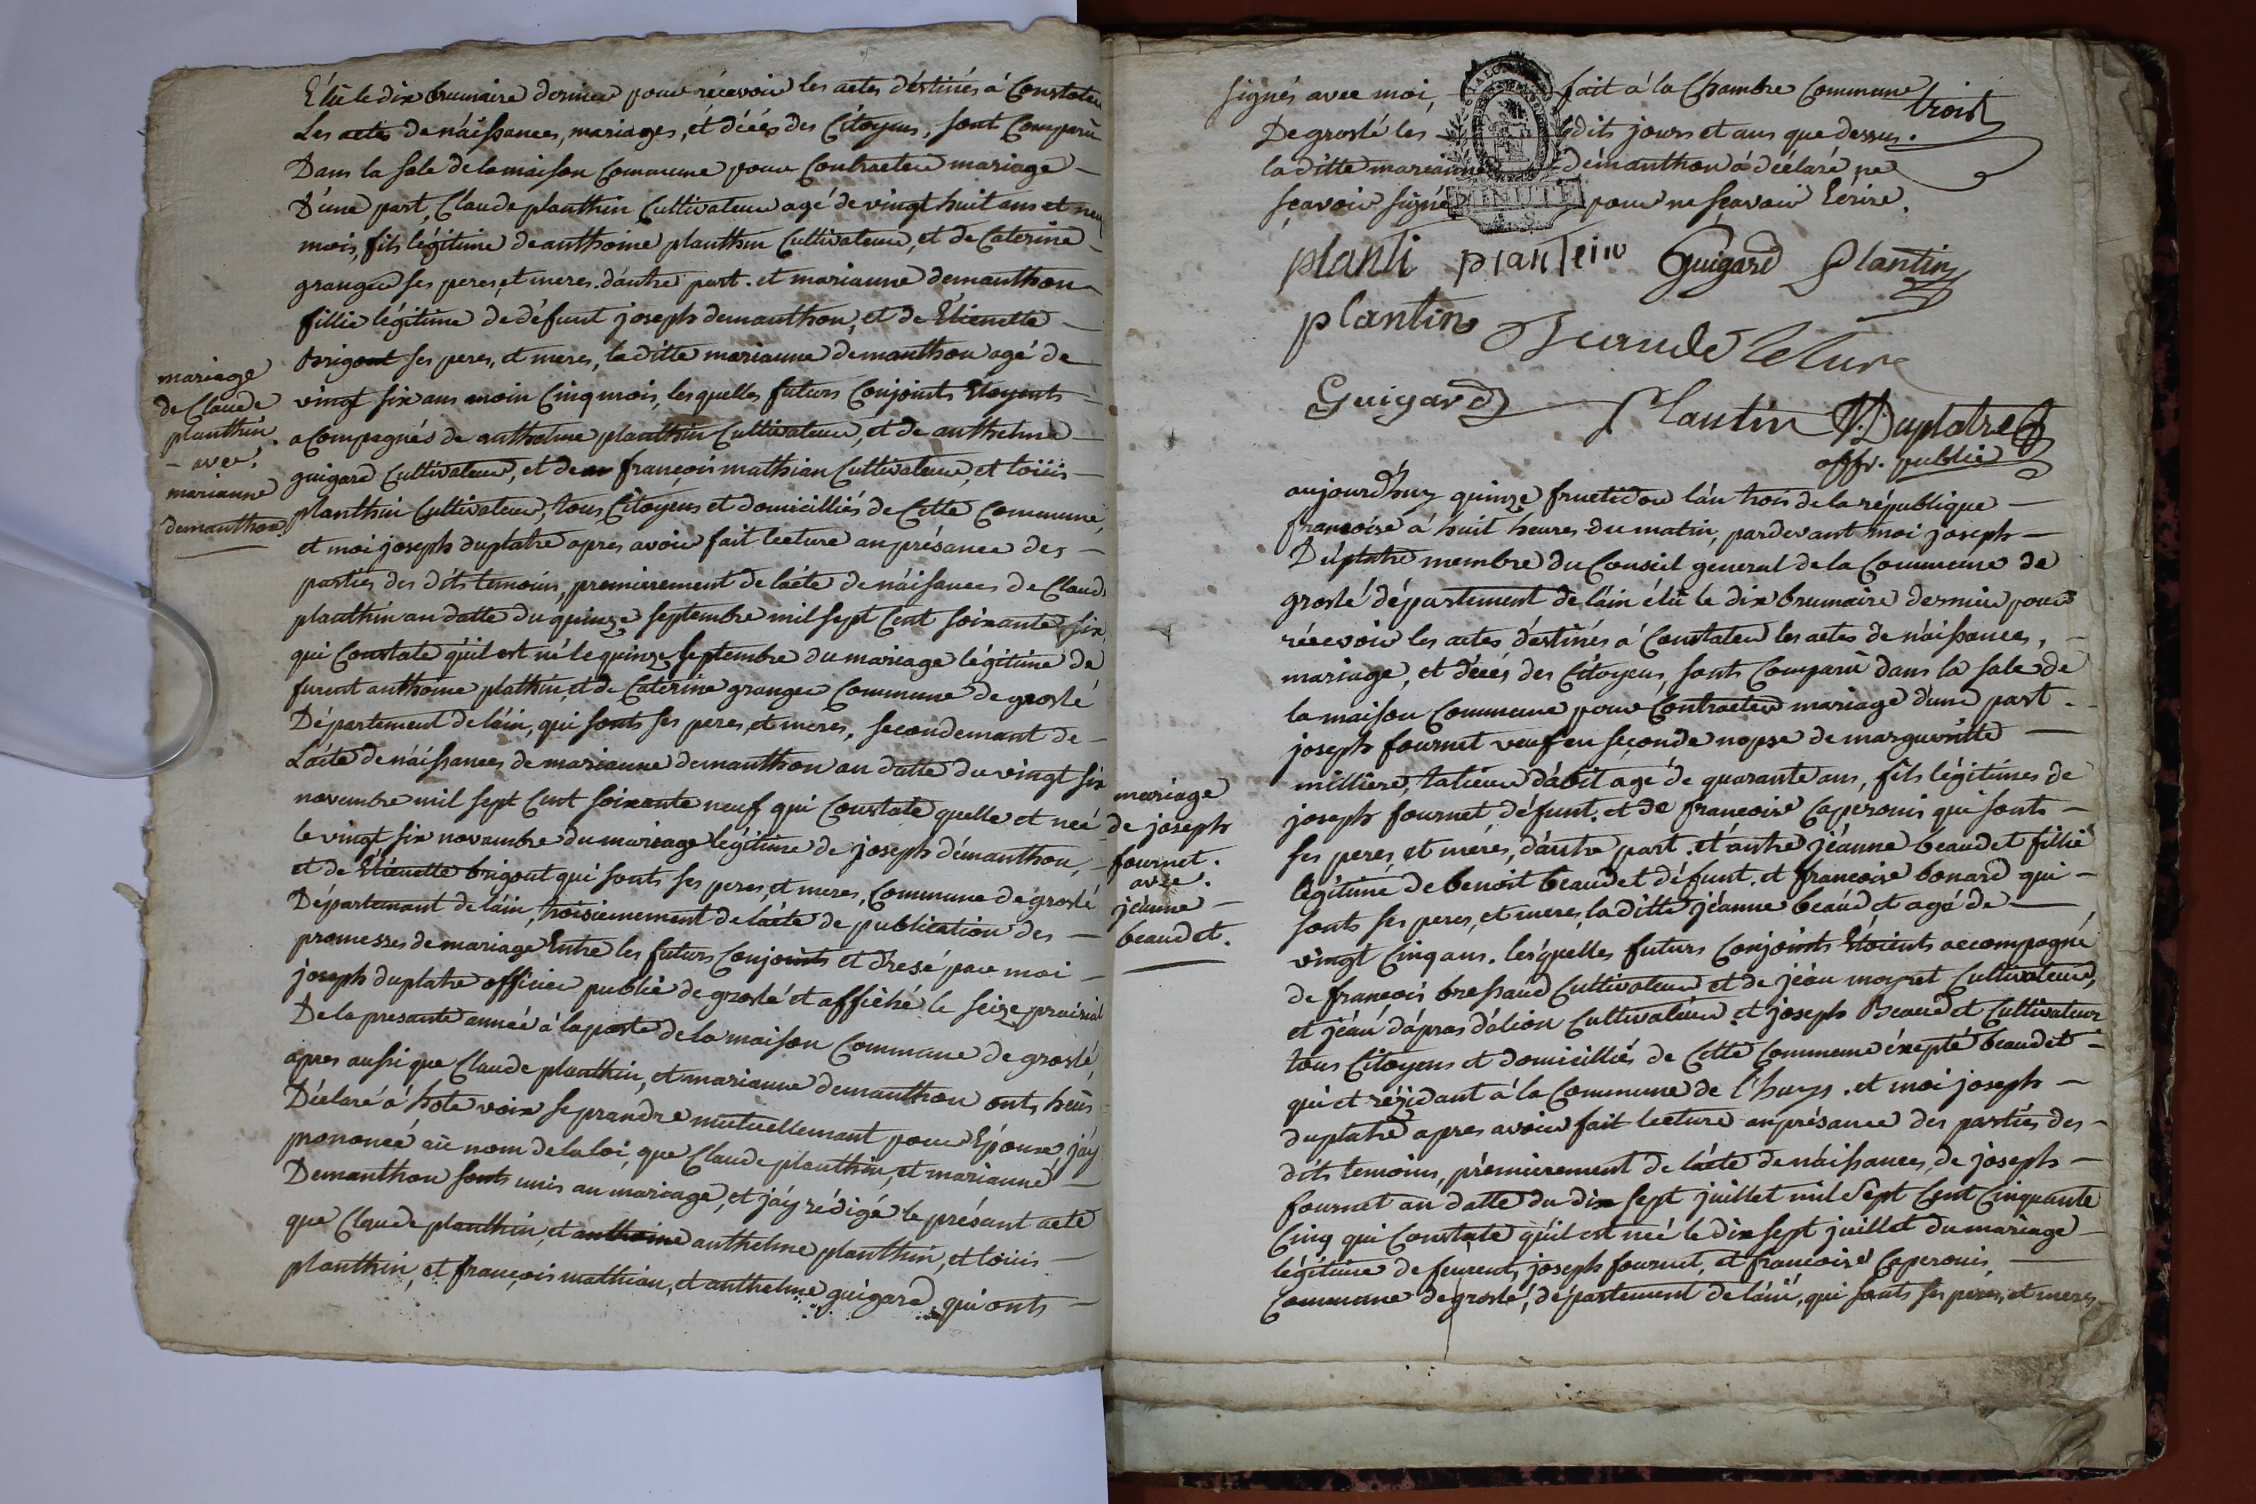 Elû le dix brumaire dernier pour récevoir les actes déstinés à Constater
Les actes de náissances, mariages, et décés des Citoyens, sont Comparû
Dans la sale de la maison Commune pour Contracter mariage —
D'une part, Claude planthin Cultivateur agé de vingt huit ans et neuf
mois, fils légitime de anthoine planthin Cultivateur, et de Caterine
granger ses peres, et meres. dáutre part. et marianne demanthon
fillie légitime de défunt joseph demanthon, et de Etienette —
brigout ses peres, et meres, la ditte marianne demanthon agé de
vingt six ans moin Cinq mois, lesquelles futurs Conjoints Etoyents —
acompagnés de anthelme planthin Cultivateur, et de anthelme —
guigard Cultivateur, et de françois mathian Cultivateur, et loiiis —
planthin Cultivateur, tous Citoyens et domicilliés de Cette Commune,
et moi joseph duplatre apres avoir fait lecture an présance des —
parties des dits temoins, premierement de lácte de náisances de Claude
planthin an datte du quinze septembre mil sept Cent soixante six
qui Constate qúil est né le quinze septembre du mariage légitime de
furent anthoine plathin, et de Caterine granger Commune de groslé
Département de láin, qui sonts ses peres, et meres, secondemant de —
Lácte de náissances de marianne demanthon an datte du vingt six
novembre mil sept Cent soixante neuf qui Constate quelle et neé
le vingt six novembre du mariage légitime de joseph démanthon,
et de Etienette brigout qui sonts ses peres, et meres, Commune de groslé
Départemant de láin, troisiemement de lácte de publication des —
promesses de mariage Entre les futurs Conjoints et dresé par moi —
joseph duplatre officier public de groslé et affiché le seize prairial
De la presante année á la porte de la maison Commune de groslé,
apres aussi que Claude planthin, et marianne demanthon onts heus
Déclaré á hote voix se prandre mutuellemant pour Epoux jáy
prononcé aü nom de la loi, que Claude planthin, et marianne —
Demanthon sonts unis an mariage, et jáy rédigé le présant acte
que Claude planthin, et anthoine anthelme planthin, et loiiis —
planthin, et françois mathian, et anthelme guigard qui onts —
mariage
de Claude
planthin.
— avec.
marianne
demanthon
signés avec moi, fait á la Chambre Commune
trois
De groslé les dits jours et ans que dessus.
la ditte marianne démanthon á déclaré ne
sçavoir signé pour ne sçavoir Ecrire.
MINUTE
planti plantein Guigard Plantin
plantin
Guigard Plantin J. Duplatre
offr. public
aujourdhuy quinze fructidor lán trois de la république —
francoise á huit heures du matin, pardevant moi joseph —
Duplatre membre du Conseil general de la Commune de
groslé département de láin élû le dix brumaire dernier pour
récevoir les actes déstinés á Constater les actes de náissances, —
mariage, et décés des Citoyens, sonts Comparû dans la sale de
la maison Commune pour Contracter mariage dúne part. —
joseph fournet veuf en seconde nopse de margueritte —
milliere, talieur dábit agé de quarante ans, fils légitimes de
joseph fournet défunt, et de francoise Caperonis qui sonts —
ses peres, et meres, dáutre part. et áutre jéanne beaudet fillie
légitime de benoit beaudet défunt. et francoise bonard qui —
sonts ses peres, et meres, la ditte jéanne beaudet agé de —
vingt Cinq ans. lesquelles futurs Conjoints Etoients accompagné
de françois bressaud Cultivateur et de jéan moyret Cultivateur,
et jéan dápras dálion Cultivateur et joseph Beaudet Cultivateur
tous Citoyens et domicilliés de Cette Commune éxepté beaudet —
qui et rézidant á la Commune de l'huys. et moi joseph —
duplatre apres avoir fait lecture an présance des parties des —
dits temoins, premierement de lácte de náissances, de joseph —
fournet an datte du dix sept juillet mil sept Cent Cinquante
Cinq qui Constate qúil est neé le dix sept juillet du mariage
légitime de feurent, joseph fournet, et francoise Caperonis, —
Commune de groslé, département de láin, qui sonts ses peres, et meres,
mariage
de joseph
fournet.
avec.
jéanne —
beaudet.